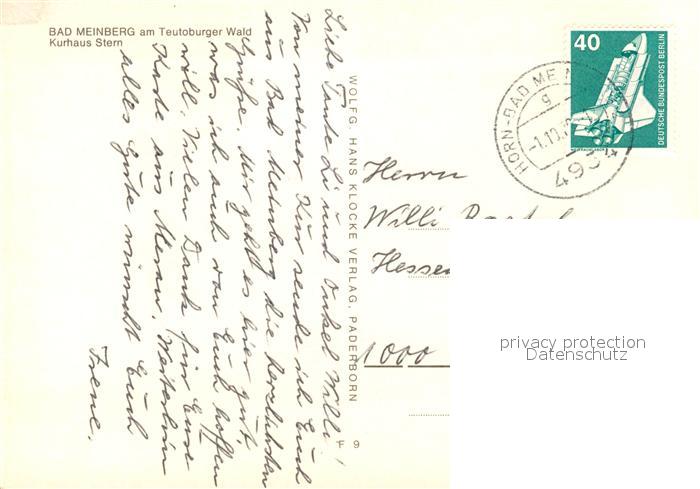 BAD MEINBERG am Teutoburger Wald
Kurhaus Stern
Liebe Tante Li und Onkel Willi!
Von meiner Kur sende ich Euch
aus Bad Meinberg die herzlichsten
Grüße. Mir geht es hier gut,
was ich auch von Euch hoffen
will. Vielen Dank für Eure
Karte aus Meran. Weiterhin
alles Gute wünscht Euch
Irene.
WOLFG. HANS KLOCKE VERLAG, PADERBORN
F 9
40
DEUTSCHE BUNDESPOST BERLIN
WELTRAUMLABOR
HORN-BAD ME
g
-1.10.
4934
Herrn
Willi
1000
privacy protection
Datenschutz